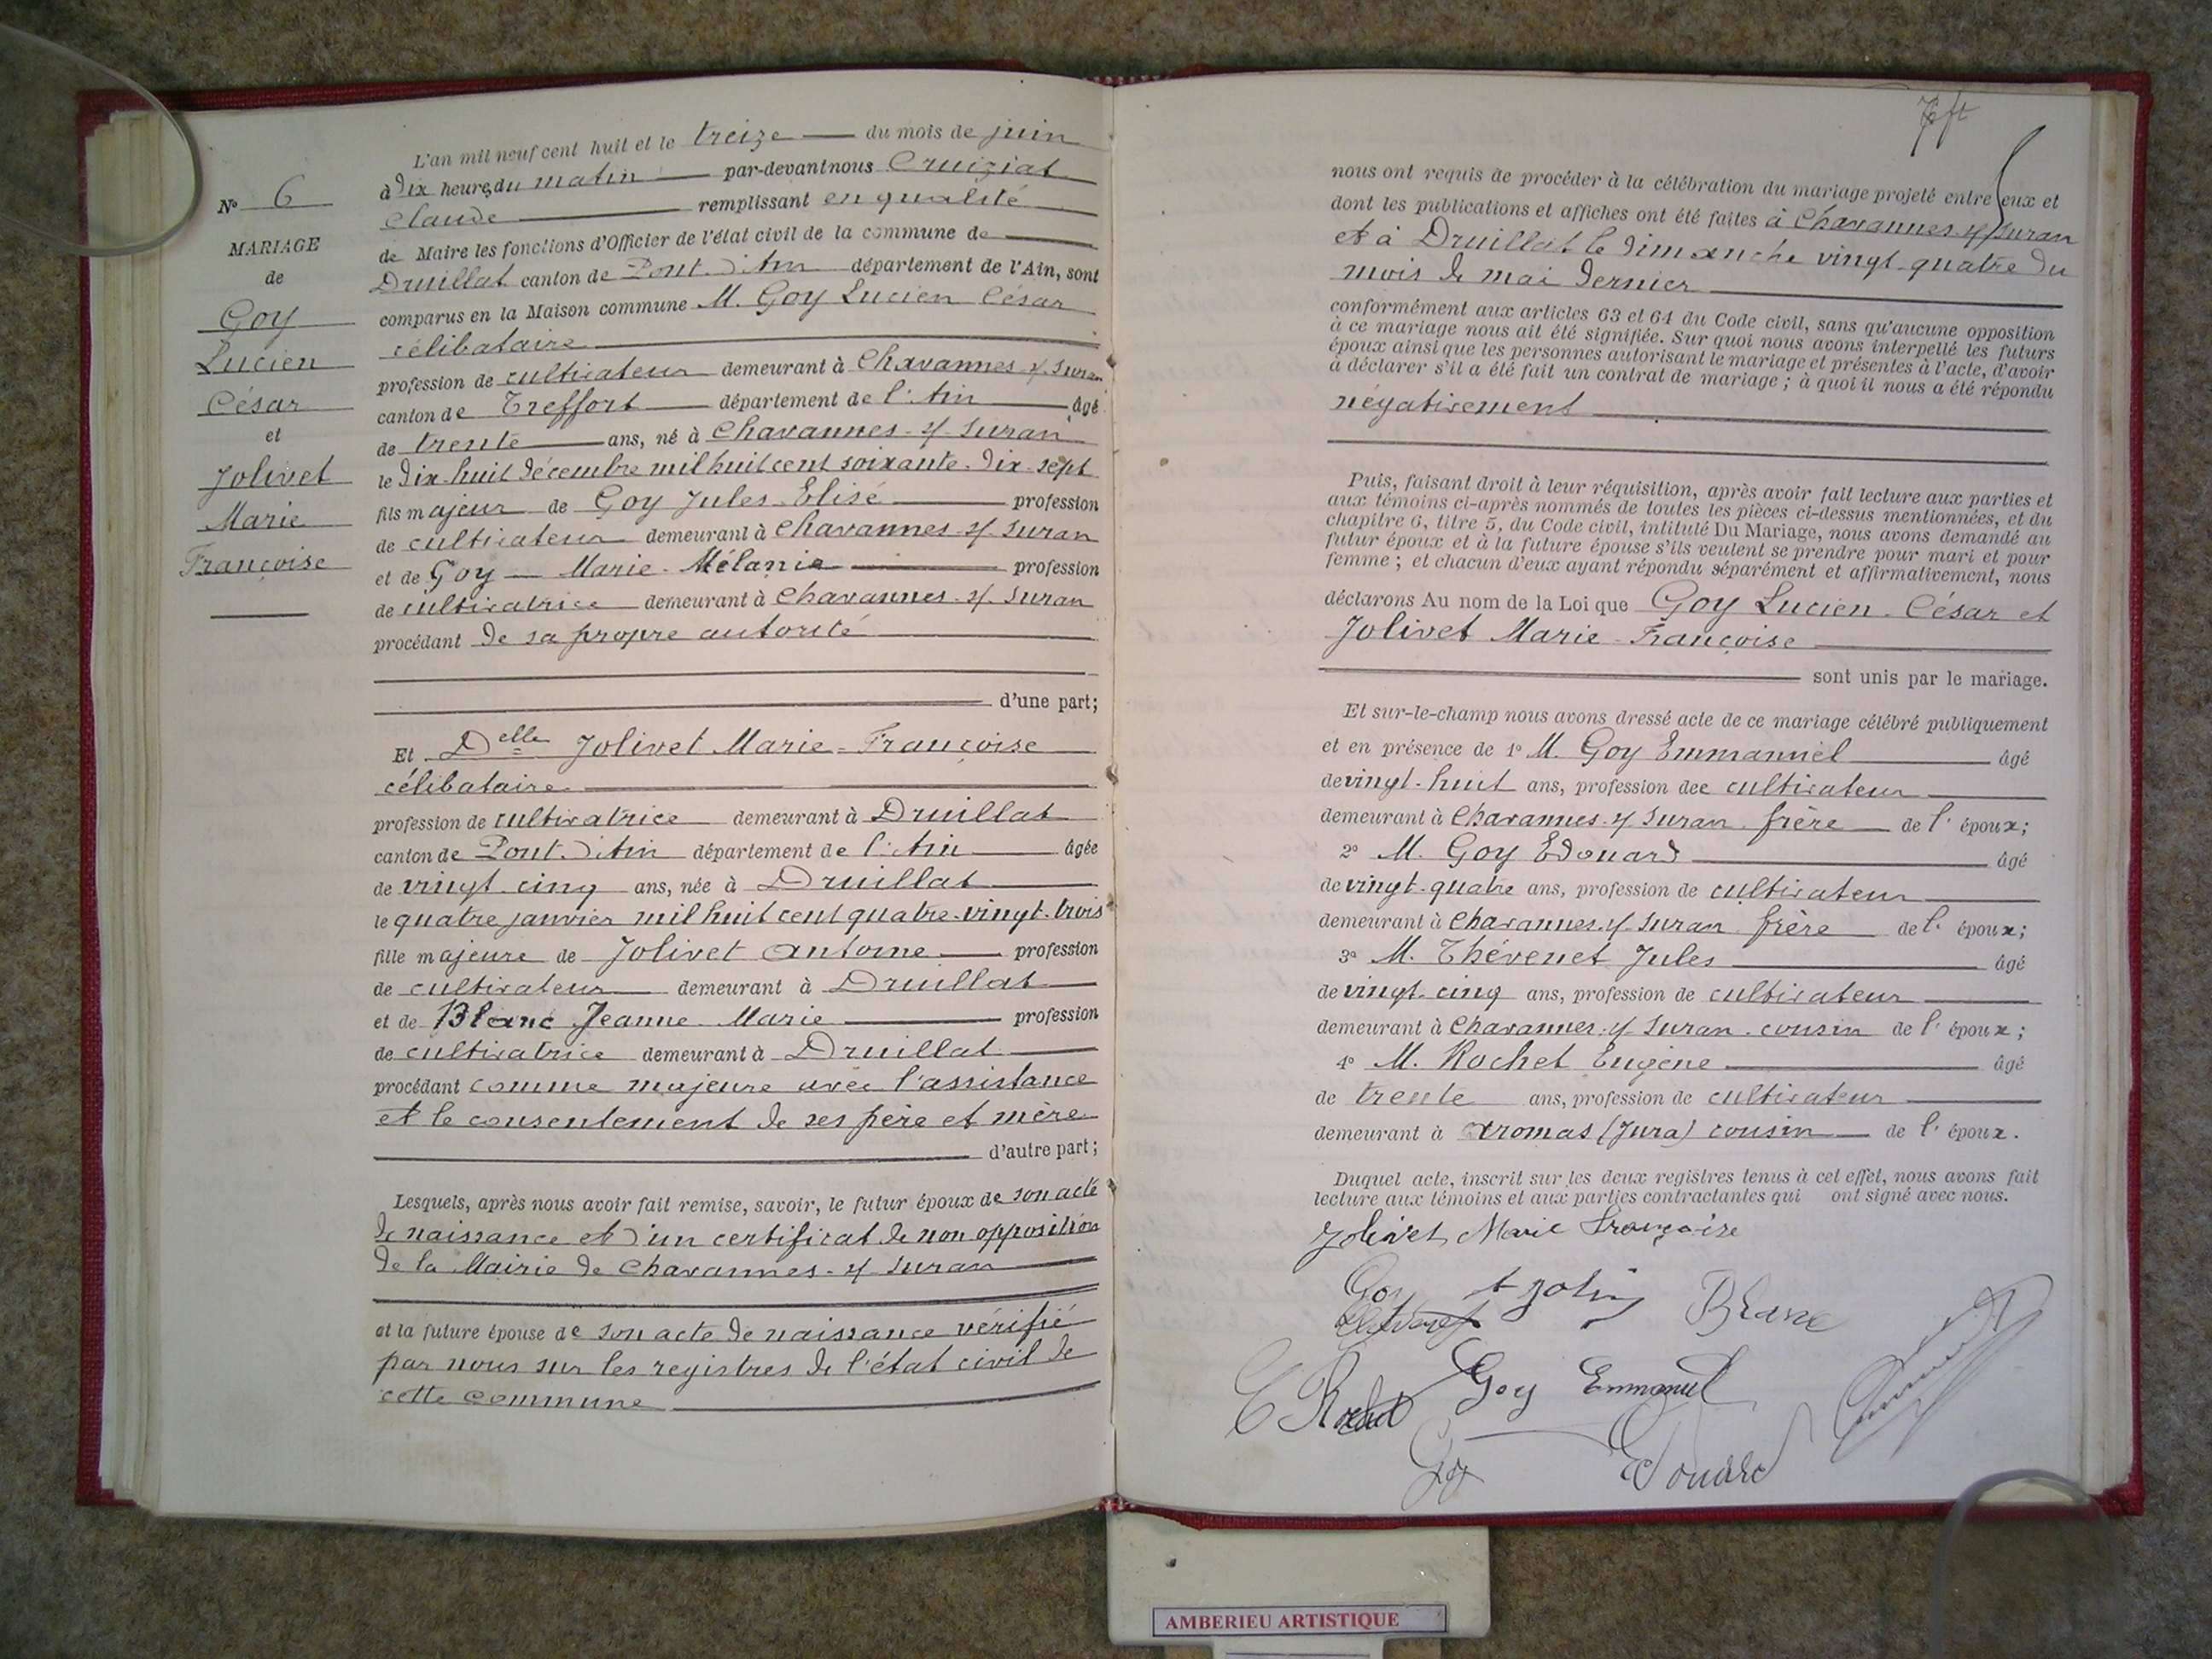 N° 6
MARIAGE
de
Goy
Lucien
César
et
Jolivet
Marie
Françoise
L'an mil neuf cent huit et le treize du mois de juin
à Dix heures du matin par-devant nous Cruiziat
Claude remplissant en qualité
de Maire les fonctions d'Officier de l'état civil de la commune de
Druillat canton de Pont-d'Ain département de l'Ain, sont
comparus en la Maison commune M. Goy Lucien César
célibataire
profession de cultivateur demeurant à Chavannes-s/-Suran
canton de Treffort département de l'Ain âgé
de trente ans, né à Chavannes-s/-Suran
le Dix-huit décembre mil huit cent soixante-Dix-sept
fils majeur de Goy Jules-Elisé profession
de cultivateur demeurant à Chavannes-s/-Suran
et de Goy Marie-Mélanie profession
de cultivatrice demeurant à Chavannes-s/-Suran
procédant de sa propre autorité
d'une part;
Et Delle Jolivet Marie-Françoise
célibataire
profession de cultivatrice demeurant à Druillat
canton de Pont-d'Ain département de l'Ain âgée
de vingt-cinq ans, née à Druillat
le quatre janvier mil huit cent quatre-vingt-trois
fille majeure de Jolivet Antoine profession
de cultivateur demeurant à Druillat
et de Blanc Jeanne-Marie profession
de cultivatrice demeurant à Druillat
procédant comme majeure avec l'assistance
et le consentement de ses père et mère
d'autre part;
Lesquels, après nous avoir fait remise, savoir, le futur époux de son acte
de naissance et d'un certificat de non opposition
de la Mairie de Chavannes-s/-Suran
et la future épouse de son acte de naissance vérifié
par nous sur les registres de l'état civil de
cette commune
nous ont requis de procéder à la célébration du mariage projeté entre eux et
dont les publications et affiches ont été faites à Chavannes-s/-Suran
et à Druillat le dimanche vingt-quatre du
mois de mai dernier
conformément aux articles 63 et 64 du Code civil, sans qu'aucune opposition
à ce mariage nous ait été signifiée. Sur quoi nous avons interpellé les futurs
époux ainsi que les personnes autorisant le mariage et présentes à l'acte, d'avoir
à déclarer s'il a été fait un contrat de mariage; à quoi il nous a été répondu
négativement
Puis, faisant droit à leur réquisition, après avoir fait lecture aux parties et
aux témoins ci-après nommés de toutes les pièces ci-dessus mentionnées, et du
chapitre 6, titre 5, du Code civil, intitulé Du Mariage, nous avons demandé au
futur époux et à la future épouse s'ils veulent se prendre pour mari et pour
femme; et chacun d'eux ayant répondu séparément et affirmativement, nous
déclarons Au nom de la Loi que Goy Lucien-César et
Jolivet Marie-Françoise
sont unis par le mariage.
Et sur-le-champ nous avons dressé acte de ce mariage célébré publiquement
et en présence de 1° M. Goy Emmanuel âgé
de vingt-huit ans, profession de cultivateur
demeurant à Chavannes-s/-Suran frère de l'époux;
2° M. Goy Edouard âgé
de vingt-quatre ans, profession de cultivateur
demeurant à Chavannes-s/-Suran frère de l'époux;
3° M. Thévenet Jules âgé
de vingt-cinq ans, profession de cultivateur
demeurant à Chavannes-s/-Suran cousin de l'époux;
4° M. Rochet Eugène âgé
de trente ans, profession de cultivateur
demeurant à Aromas (Jura) cousin de l'époux.
Duquel acte, inscrit sur les deux registres tenus à cet effet, nous avons fait
lecture aux témoins et aux parties contractantes qui ont signé avec nous.
Jolivet Marie Françoise
Goy Blanc
E Rochet Goy Emmanuel
Goy Edouard
AMBERIEU ARTISTIQUE